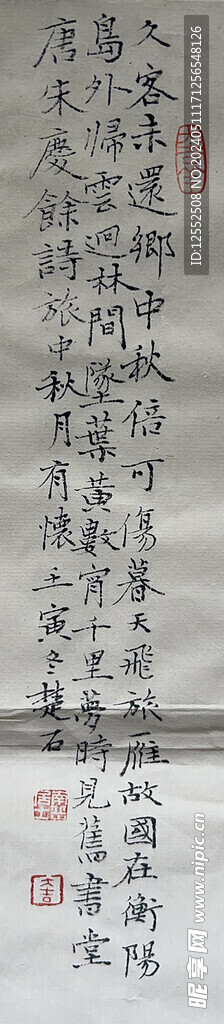 久客未還鄉中秋倍可傷暮天飛旅雁故國在衡陽
島外歸雲迥林間墜葉黃數宵千里夢時見舊書堂
唐朱慶餘詩旅中秋月有懷壬寅冬楚石
大吉
昵享网 www.nipic.cn
ID:12552508 NO:20240511171256548126